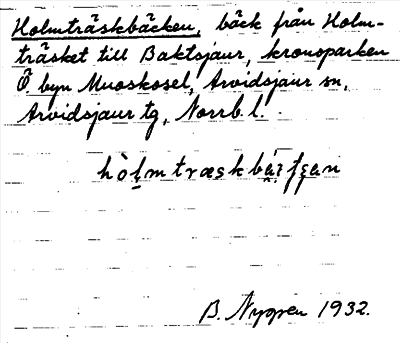 Holmträskbäcken, bäck från Holm-
träsket till Baktsjaur, kronoparken
Ö byn Muoskosel, Arvidsjaur sn,
Arvidsjaur tg, Norrb. l.
B. Nygren 1932.